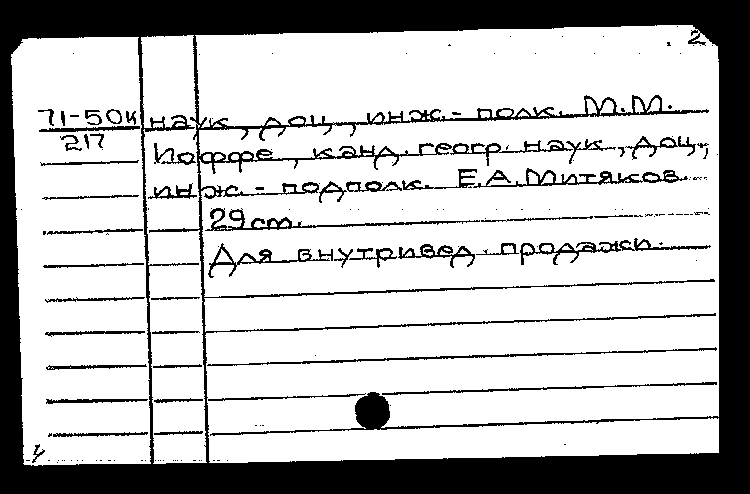 2
71-50к наук, доц, инж.- полк. М.М.
217
Иоффе, канд. геогр. наук, доц.,
инж.- подполк. Е.А.Митяков.
29 cm.
Для внутривед. продажи.